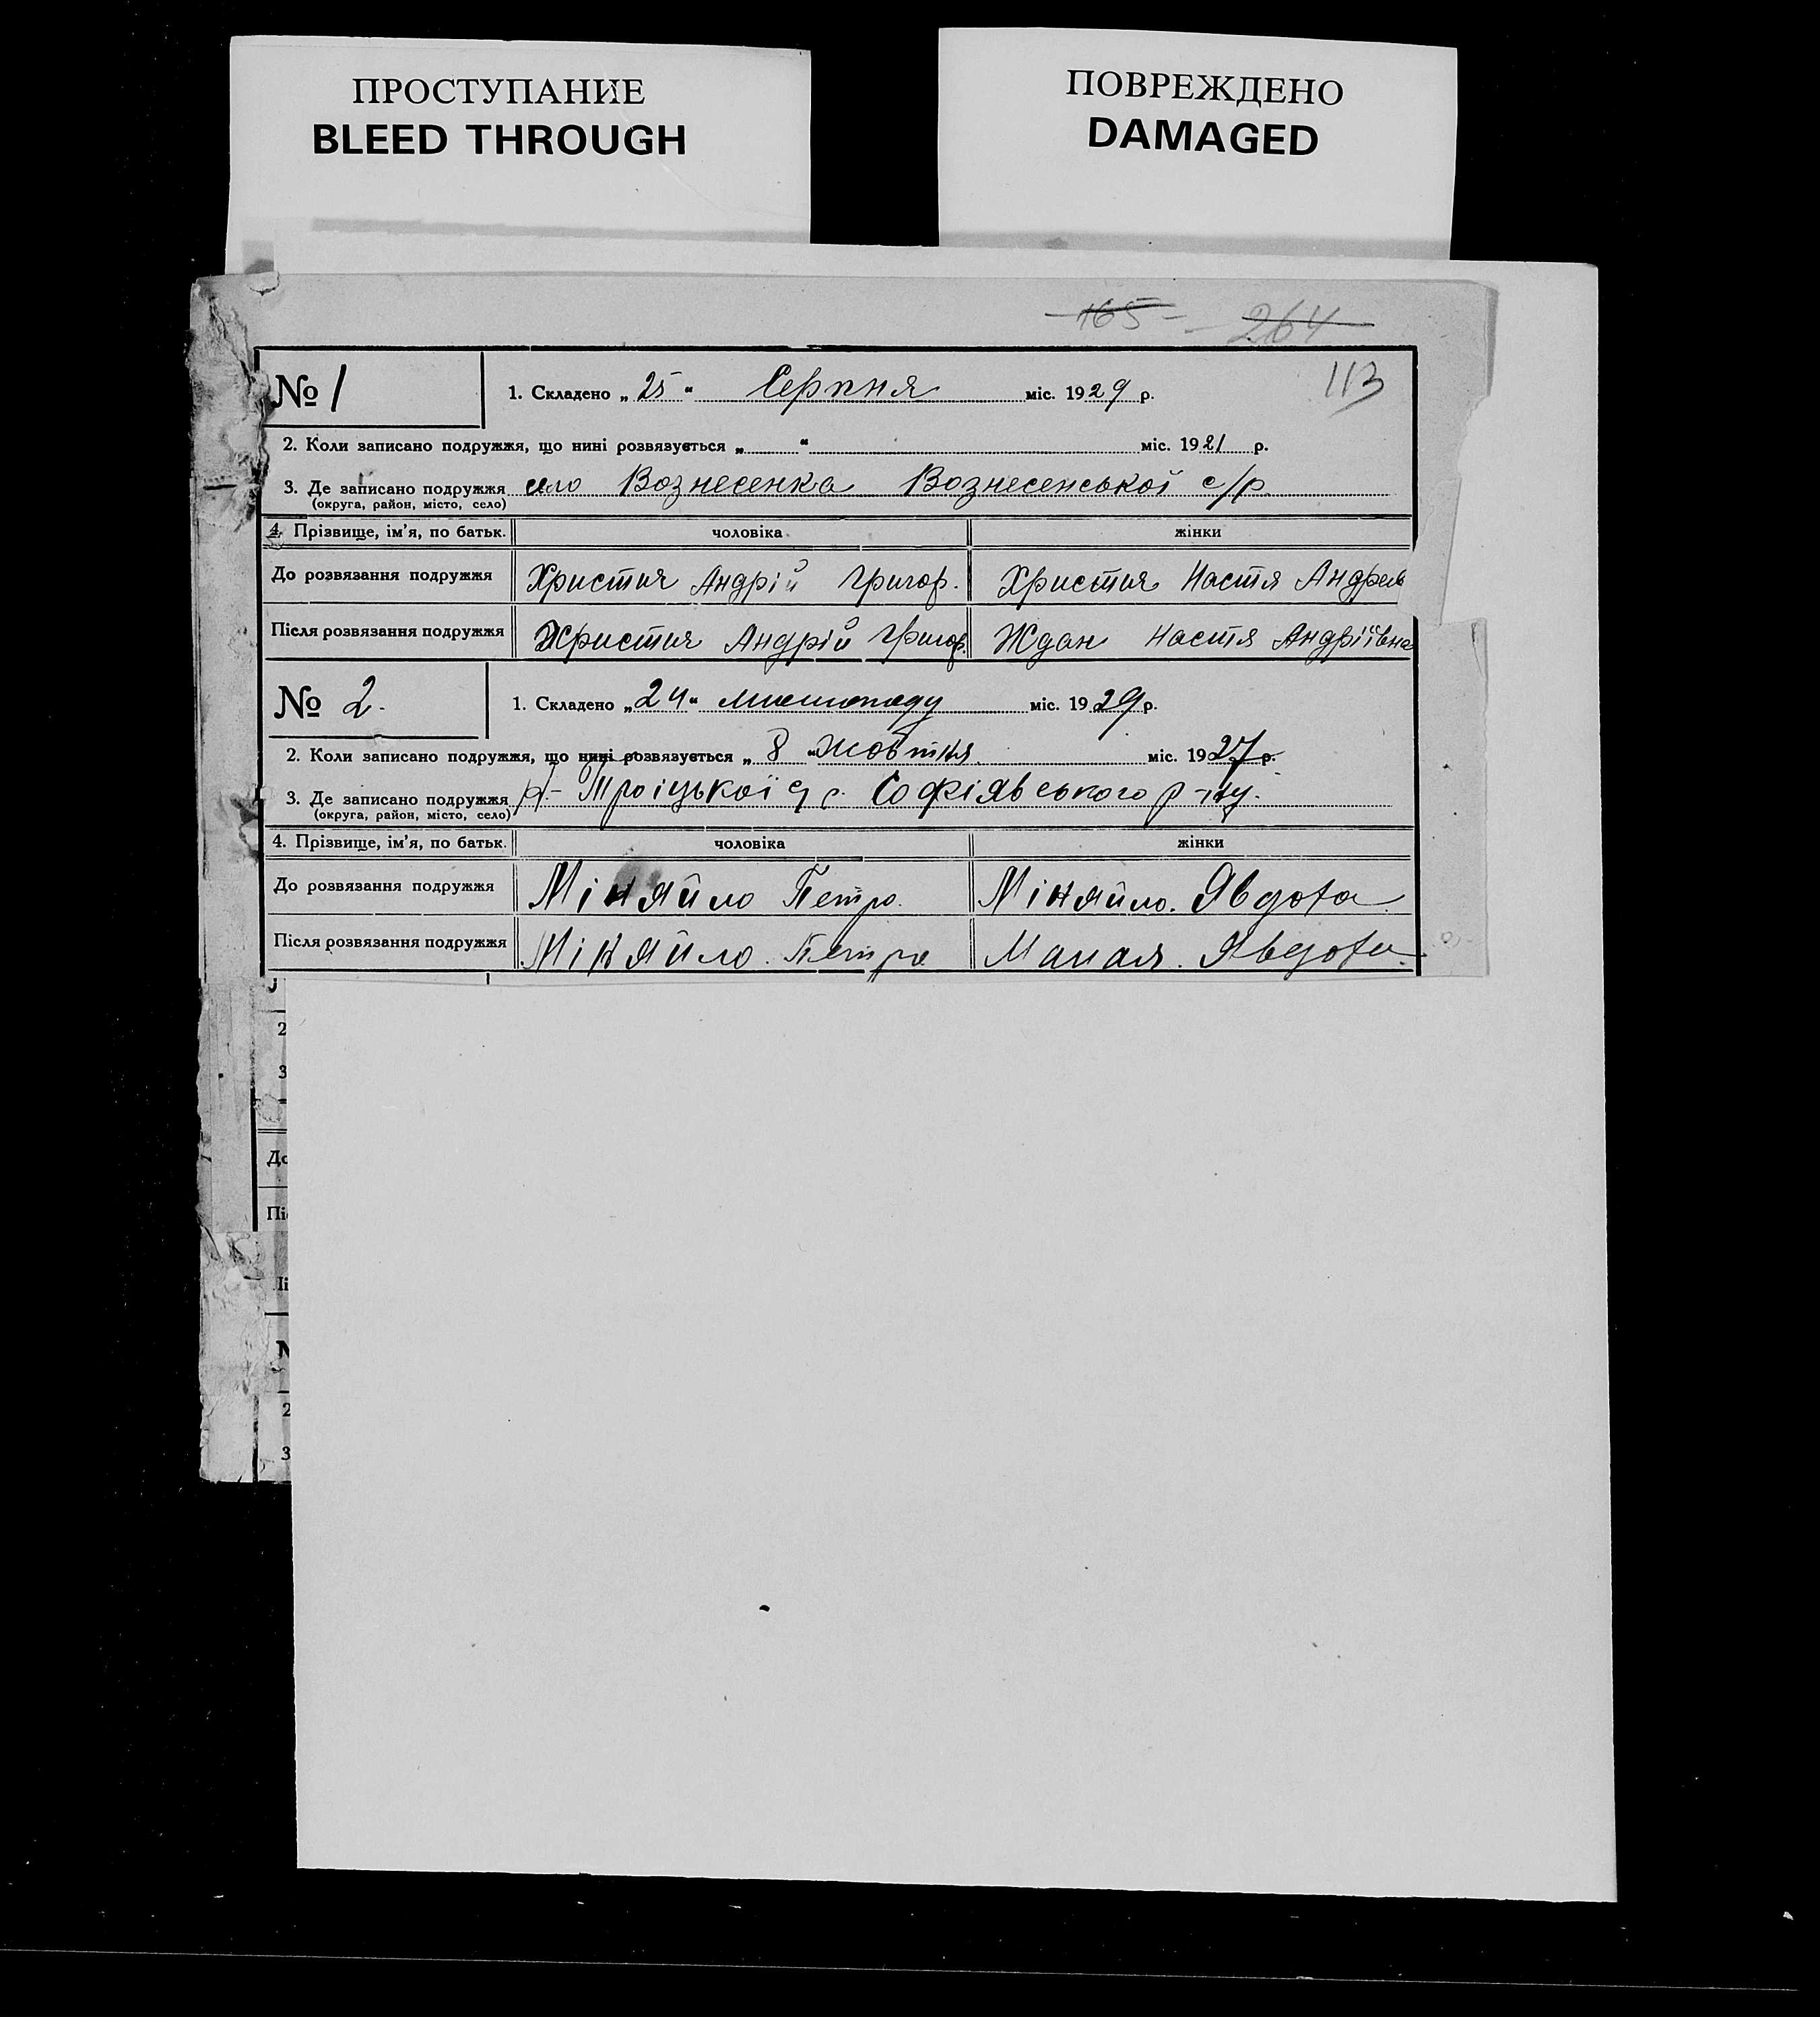 ПРОСТУПАНИЕ
BLEED THROUGH
ПОВРЕЖДЕНО
DAMAGED
165 264
113
№ 1
1. Складено „ 25 “ Серпня міс. 1929 р.
2. Коли записано подружжя, що нині розвязується „ “ міс. 1921 р.
3. Де записано подружжя село Вознесенка Вознесенської с/р.
(округа, район, місто, село)
4. Прізвище, ім’я, по батьк. чоловіка жінки
До розвязання подружжя Христич Андрій Григор. Христич Настя Андреев
Після розвязання подружжя Христич Андрій Григор. Ждан Настя Андріївна
№ 2.
1. Складено „ 24 “ листопаду міс. 1929 р.
2. Коли записано подружжя, що нині розвязується „ 8 “ жовтня міс. 1927 р.
3. Де записано подружжя Троіцької Софіявського р-ну.
(округа, район, місто, село)
4. Прізвище, ім’я, по батьк. чоловіка жінки
До розвязання подружжя Міняйло Петро. Міняйло. Явдоха
Після розвязання подружжя Міняйло. Петро Явдоха.
2
3
До
Пі
N
2
3